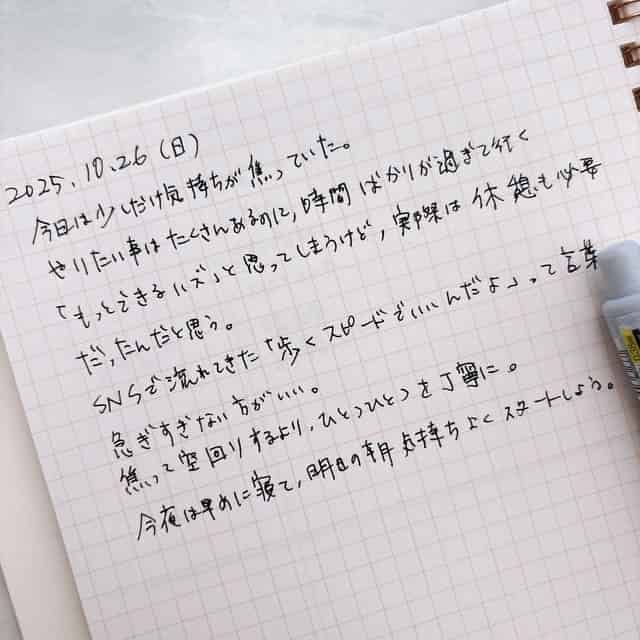 2025.10.26 (日)
今日は少しだけ気持ちが焦っていた。
やりたい事はたくさんあるのに、時間ばかりが過ぎて行く
「もっとできるハズ」と思ってしまうけど、実際は休憩も必要
だったんだと思う。
SNSで流れてきた「歩くスピードでいいんだよ」って言葉
急ぎすぎない方がいい。
焦って空回りするより、ひとつひとつを丁寧に。
今夜は早めに寝て、明日の朝気持ちよくスタートしよう。